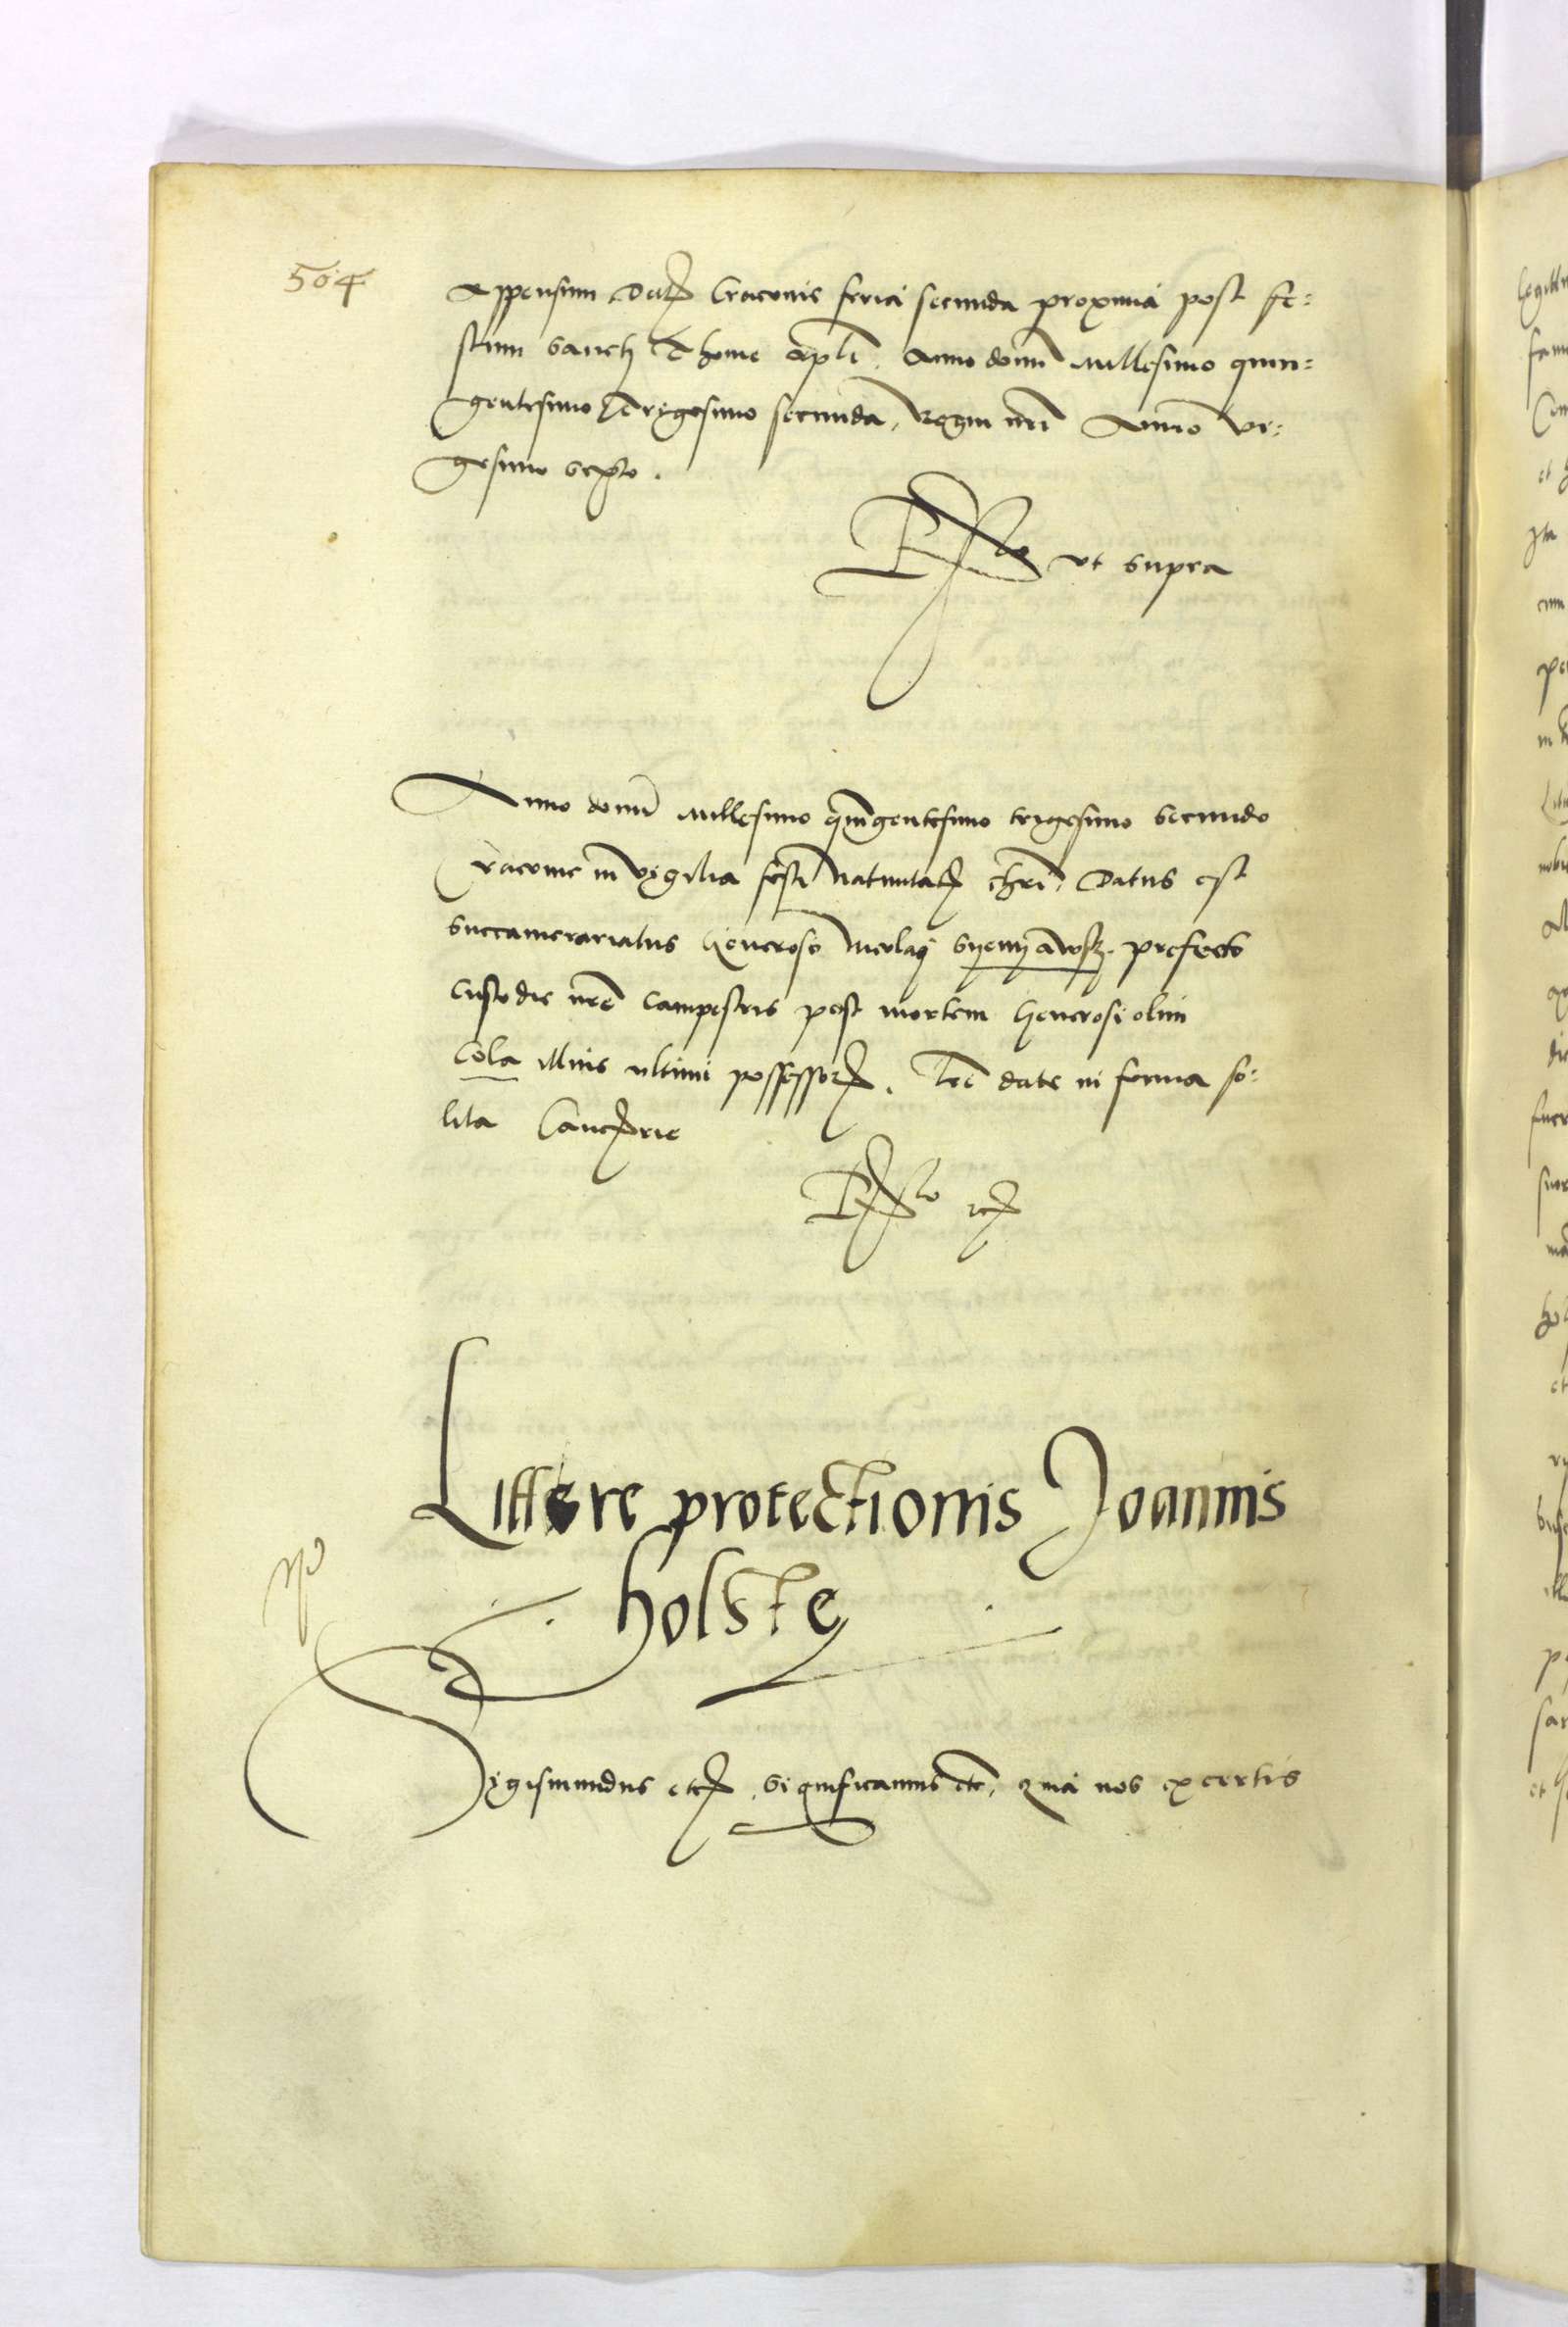 504
appensum Dat Cracovie feria secunda proxima post fe=
stum Sancti Thome apli. Anno domi millesimo quin=
gentesimo Trigesimo secundo, Regni nri Anno vi=
gesimo sexto.
Rlo ut supra
Anno domi millesimo quingentesimo trigesimo secundo
Cracovie in vigilia festi nativitat chri. Datus est
succamerariatus Generoso Nicolao Syenyawsky prefecto
custodie nre campestris post mortem Generosi olim
Cola illius ultimi possessor. lre date in forma so=
lita Cancrie
Rlo etc
Littere protectionis Joannis
holste
Sigismundus etc. significamus etc, quia nos ex certis